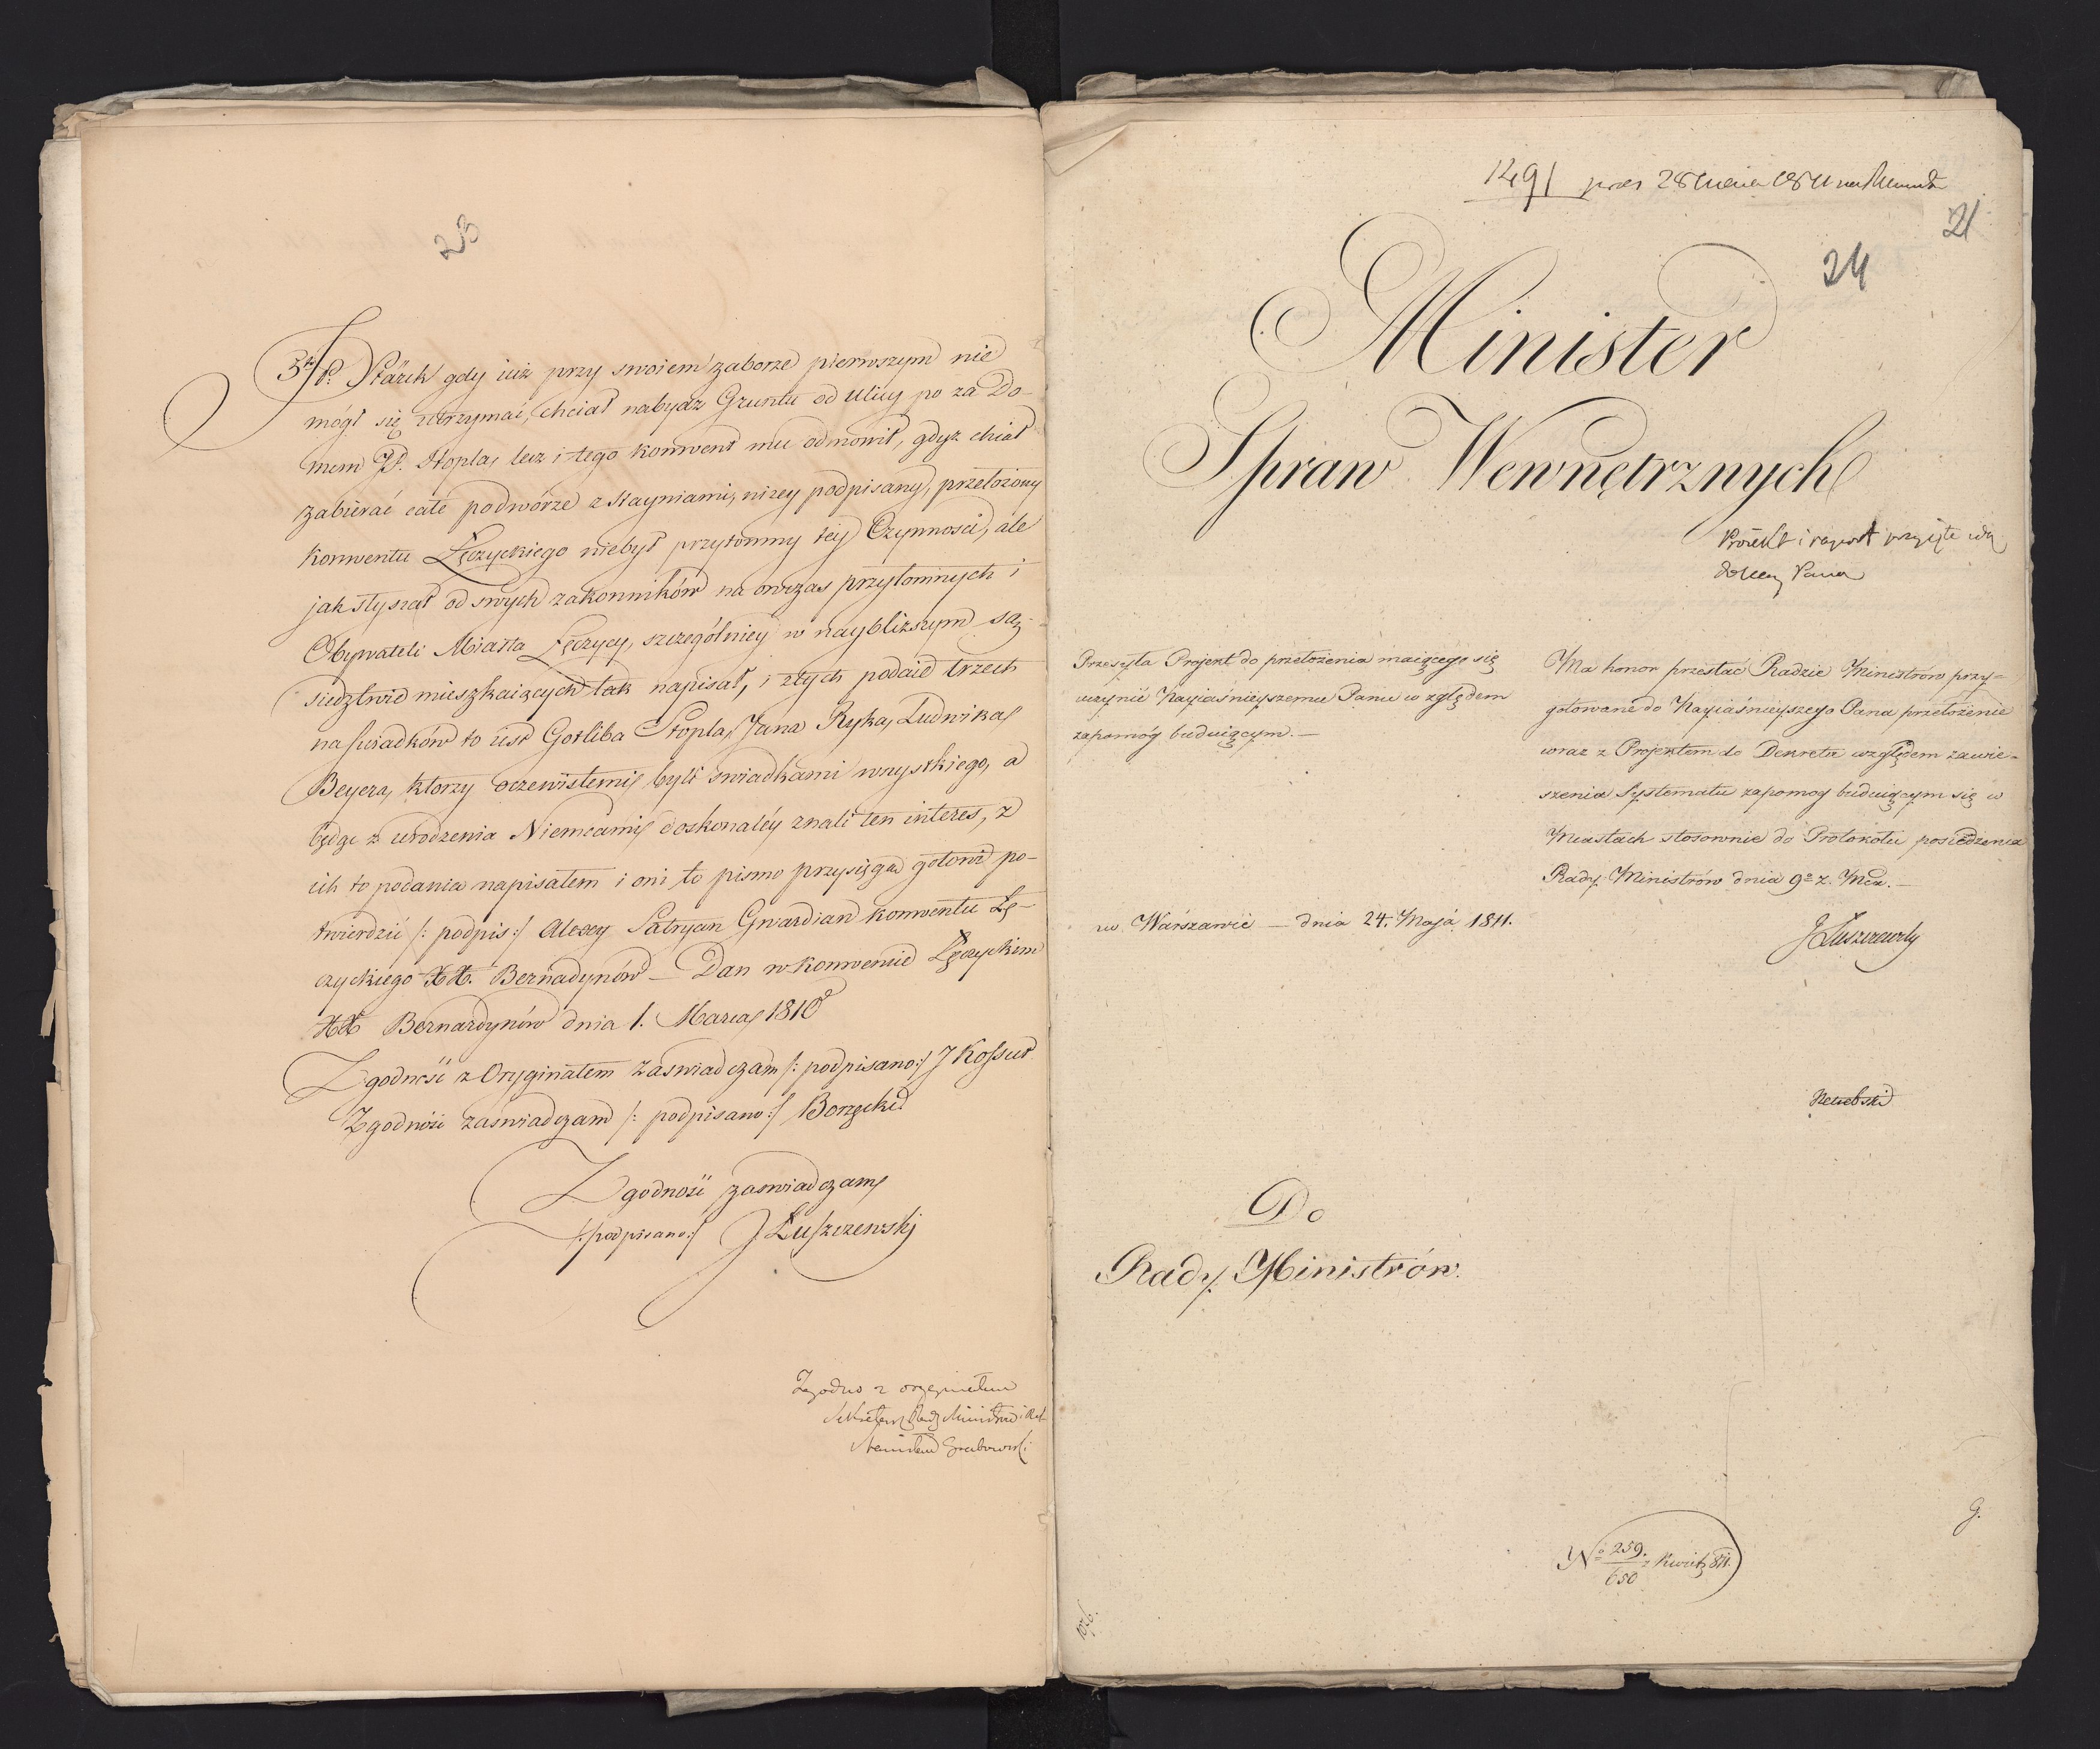 23
3tio P. Stärck gdy iuż przy swoiem zaborze pierwszym nie
mógł się utrzymać, chciał nabydz Gruntu od Ulicy po za Do-
mem JP. Stopla, lecz i tego konwent mu odmówił, gdyż chciał
zabierać całe podwórze z stayniami, niżey podpisany, przełożony
konwentu Łęczyckiego niebył przytomny tey Czynności, ale
jak słyszał od swych zakonników na owczas przytomnych i
Obywateli Miasta Łęczycy, szczególniey w naybliższym są-
siedztwie mieszkaiących tak napisał, i z tych podaie trzech
na świadków to iest Gotliba Stopla, Jana Ryka, Ludwika
Beyera, ktorzy oczewistemi byli świadkami wszystkiego, a
będąc z urodzenia Niemcami doskonaléy znali ten interes, z
ich to podania napisałem i oni to pismo przysięgą gotowi po-
twierdzić /: podpis :/ Alexy Satryan Gwardian konwentu Łę-
czyckiego XX. Bernadynów — Dan w Konwencie Łęczyckim
XX Bernardynów dnia 1. Marca 1810
Zgodność z Oryginałem zaświadczam /: podpisano :/ J Kossut
Zgodność zaświadczam /: podpisano :/ Borzęcki
Zgodność zaświadczam
/: podpisano :/ J Łuszczewski
Zgodno z oryginałem
Sekretarz Rady Ministrów
Stanisław Grabowski
1491
21
24
Minister
Spraw Wewnętrznych
Proiekt i raport przyięte
do Pana
Przesyła Projekt do przełożenia maiącego się
uczynić Nayiaśnieyszemu Panu względem
zapomóg buduiącym. —
w Warszawie — dnia 24. Maja 1811.
Ma honor przesłać Radzie Ministrów przy=
gotowane do Nayiaśnieyszego Pana przełożenie
wraz z Projektem do Dekretu względem zawie=
szenia Systematu zapomog buduiącym się w
Miastach stosownie do Protokołu posiedzenia
Rady Ministrów dnia 9º z. Mca. —
J Łuszczewski
Do
Rady Ministrów.
G.
Nº 259.
650 z Kwiet. 811.